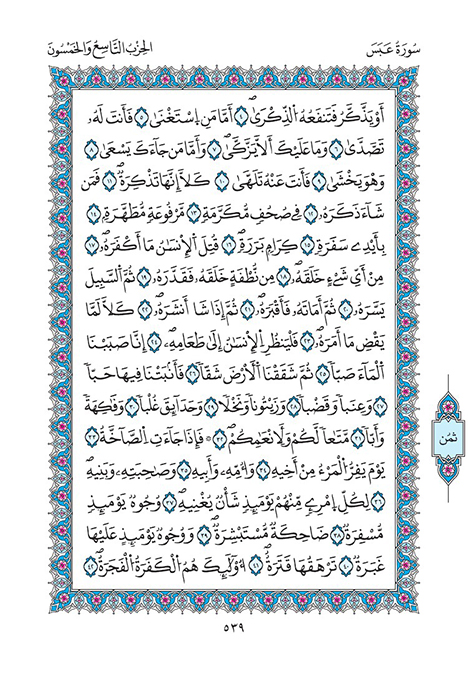 سُورَةُ عَبَسَ الحِزْبُ التَّاسِعُ وَالخَمْسُونَ
أَوْ يَذَّكَّرُ فَتَنفَعُهُ اُ۬لذِّكْرَىٰٓ ٤ أَمَّا مَنِ اِ۪سْتَغْنَىٰ ٥ فَأَنتَ لَهُۥ
تَصَّدَّىٰ ٦ وَمَا عَلَيْكَ أَلَّا يَزَّكَّىٰ ٧ وَأَمَّا مَن جَآءَكَ يَسْعَىٰ ٨
وَهُوَ يَخْشَىٰ ٩ فَأَنتَ عَنْهُ تَلَهَّىٰ ١٠ كَلَّآ إِنَّهَا تَذْكِرَةٌ ١١ فَمَن
شَآءَ ذَكَرَهُۥ ١٢ فِے صُحُفٍ مُّكَرَّمَةٍ ١٣ مَّرْفُوعَةٍ مُّطَهَّرَةٍۭ ١٤
بِأَيْدِے سَفَرَةٍ ١٥ كِرَامٍۭ بَرَرَةٍ ١٦ قُتِلَ اَ۬لْإِنسَٰنُ مَآ أَكْفَرَهُۥ ١٧
مِنْ أَيِّ شَےْءٍ خَلَقَهُۥ ١٨ مِن نُّطْفَةٍ خَلَقَهُۥ فَقَدَّرَهُۥ ١٩ ثُمَّ اَ۬لسَّبِيلَ
يَسَّرَهُۥ ٢٠ ثُمَّ أَمَاتَهُۥ فَأَقْبَرَهُۥ ٢١ ثُمَّ إِذَا شَآ أَنشَرَهُۥ ٢٢ كَلَّا لَمَّا
يَقْضِ مَآ أَمَرَهُۥ ٢٣ فَلْيَنظُرِ اِ۬لْإِنسَٰنُ إِلَىٰ طَعَامِهِۦٓ ٢٤ إِنَّا صَبَبْنَا
اَ۬لْمَآءَ صَبّاً ٢٥ ثُمَّ شَقَقْنَا اَ۬لْأَرْضَ شَقّاً ٢٦ فَأَنۢبَتْنَا فِيهَا حَبّاً
٢٧ وَعِنَباً وَقَضْباً ٢٨ وَزَيْتُوناً وَنَخْلاً ٢٩ وَحَدَآئِقَ غُلْباً ٣٠ وَفَٰكِهَةً
وَأَبّاً ٣١ مَّتَٰعاً لَّكُمْ وَلِأَنْعَٰمِكُمْ ٣٢ فَإِذَا جَآءَتِ اِ۬لصَّآخَّةُ ٣٣
يَوْمَ يَفِرُّ اُ۬لْمَرْءُ مِنْ أَخِيهِ ٣٤ وَأُمِّهِۦ وَأَبِيهِ ٣٥ وَصَٰحِبَتِهِۦ وَبَنِيهِ
٣٦ لِكُلِّ اِ۪مْرِےٕٖ مِّنْهُمْ يَوْمَئِذٍ شَأْنٌ يُغْنِيهِ ٣٧ وُجُوهٌ يَوْمَئِذٍ
مُّسْفِرَةٌ ٣٨ ضَاحِكَةٌ مُّسْتَبْشِرَةٌ ٣٩ وَوُجُوهٌ يَوْمَئِذٍ عَلَيْهَا
غَبَرَةٌ ٤٠ تَرْهَقُهَا قَتَرَةٌ ٤١ أُوْلَٰٓئِكَ هُمُ اُ۬لْكَفَرَةُ اُ۬لْفَجَرَةُ ٤٢
ثُمُن
٥٣٩